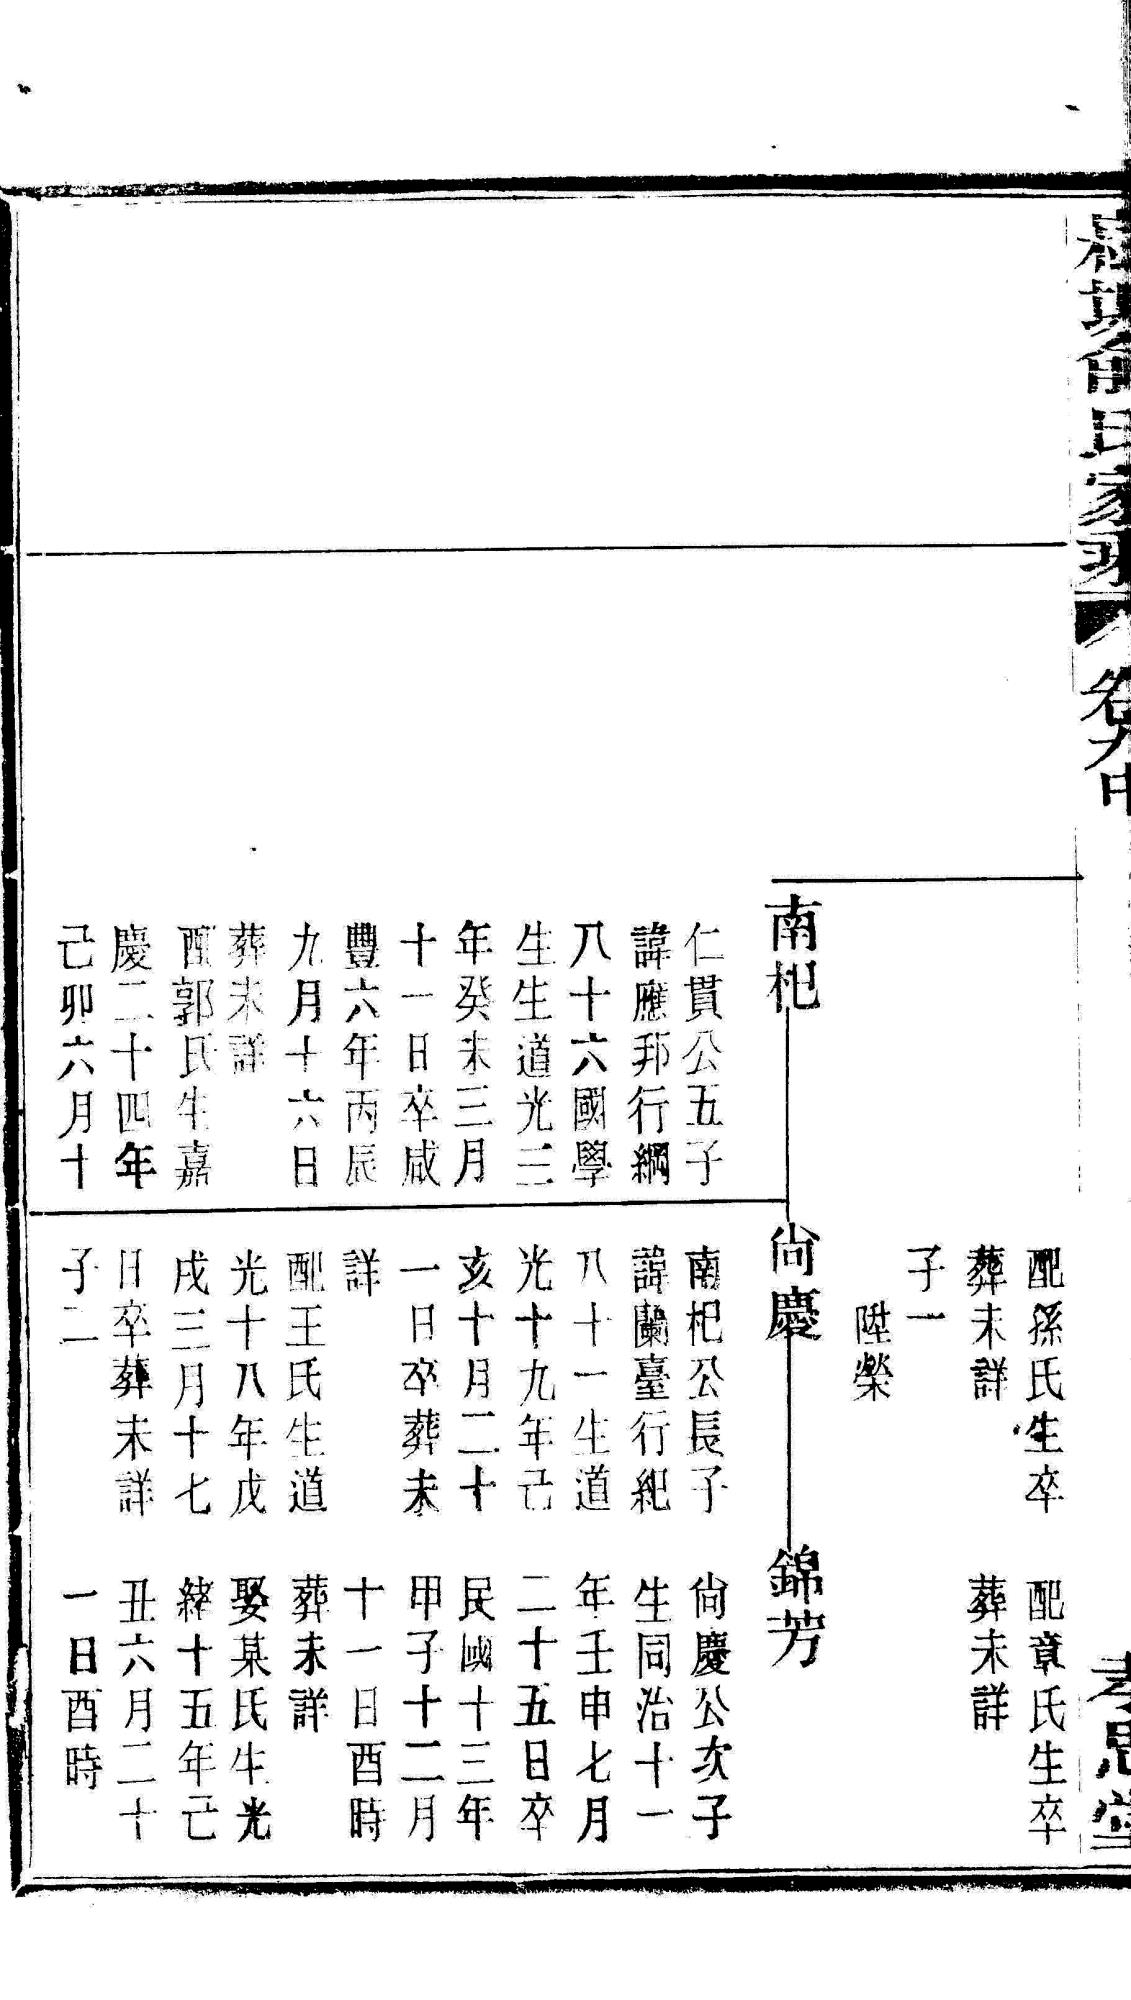 氏家乘
卷九中
孝思堂
配孫氏生卒
葬未詳
子一
陞榮
配章氏生卒
葬未詳
南杞
仁貫公五子
諱應邦行綱
八十六國學
生生道光三
年癸未三月
十一日卒咸
豐六年丙辰
九月十六日
葬未詳
配郭氏生嘉
慶二十四年
己卯六月十
尙慶
南杞公長子
諱蘭臺行紀
八十一生道
光十九年己
亥十月二十
一日卒葬未
詳
配王氏生道
光十八年戊
戌三月十七
日卒葬未詳
子二
錦芳
尙慶公次子
生同治十一
年壬申七月
二十五日卒
民國十三年
甲子十二月
十一日酉時
葬未詳
娶某氏生光
緒十五年己
丑六月二十
一日酉時